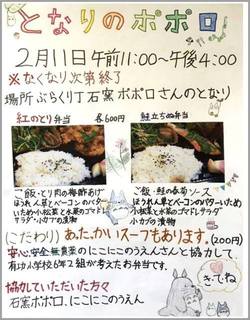 となりのポポロ
2月11日 午前11:00~午後4:00
※なくなり次第終了
場所 ぶらくり丁 石窯 ポポロさんのとなり
紅のとり弁当 各600円 鮭立ちぬ弁当
ご飯・とり肉の梅酢あげ
ほうれん草とベーコンのバター
いため・小松菜と水菜のゴマドレ
サラダ・小カブの漬物
ご飯・鮭の香草ソース
ほうれん草とベーコンのバターいため
小松菜と水菜のゴマドレサラダ
小カブの漬物
(こだわり) あたたかいスープもあります。(200円)
安心・安全・無農薬のにこにこのうえんさんと協力して、
有功小学校6年2組が考えたお弁当です。
協力していただいた方々
石窯ポポロ、にこにこのうえん
きてね